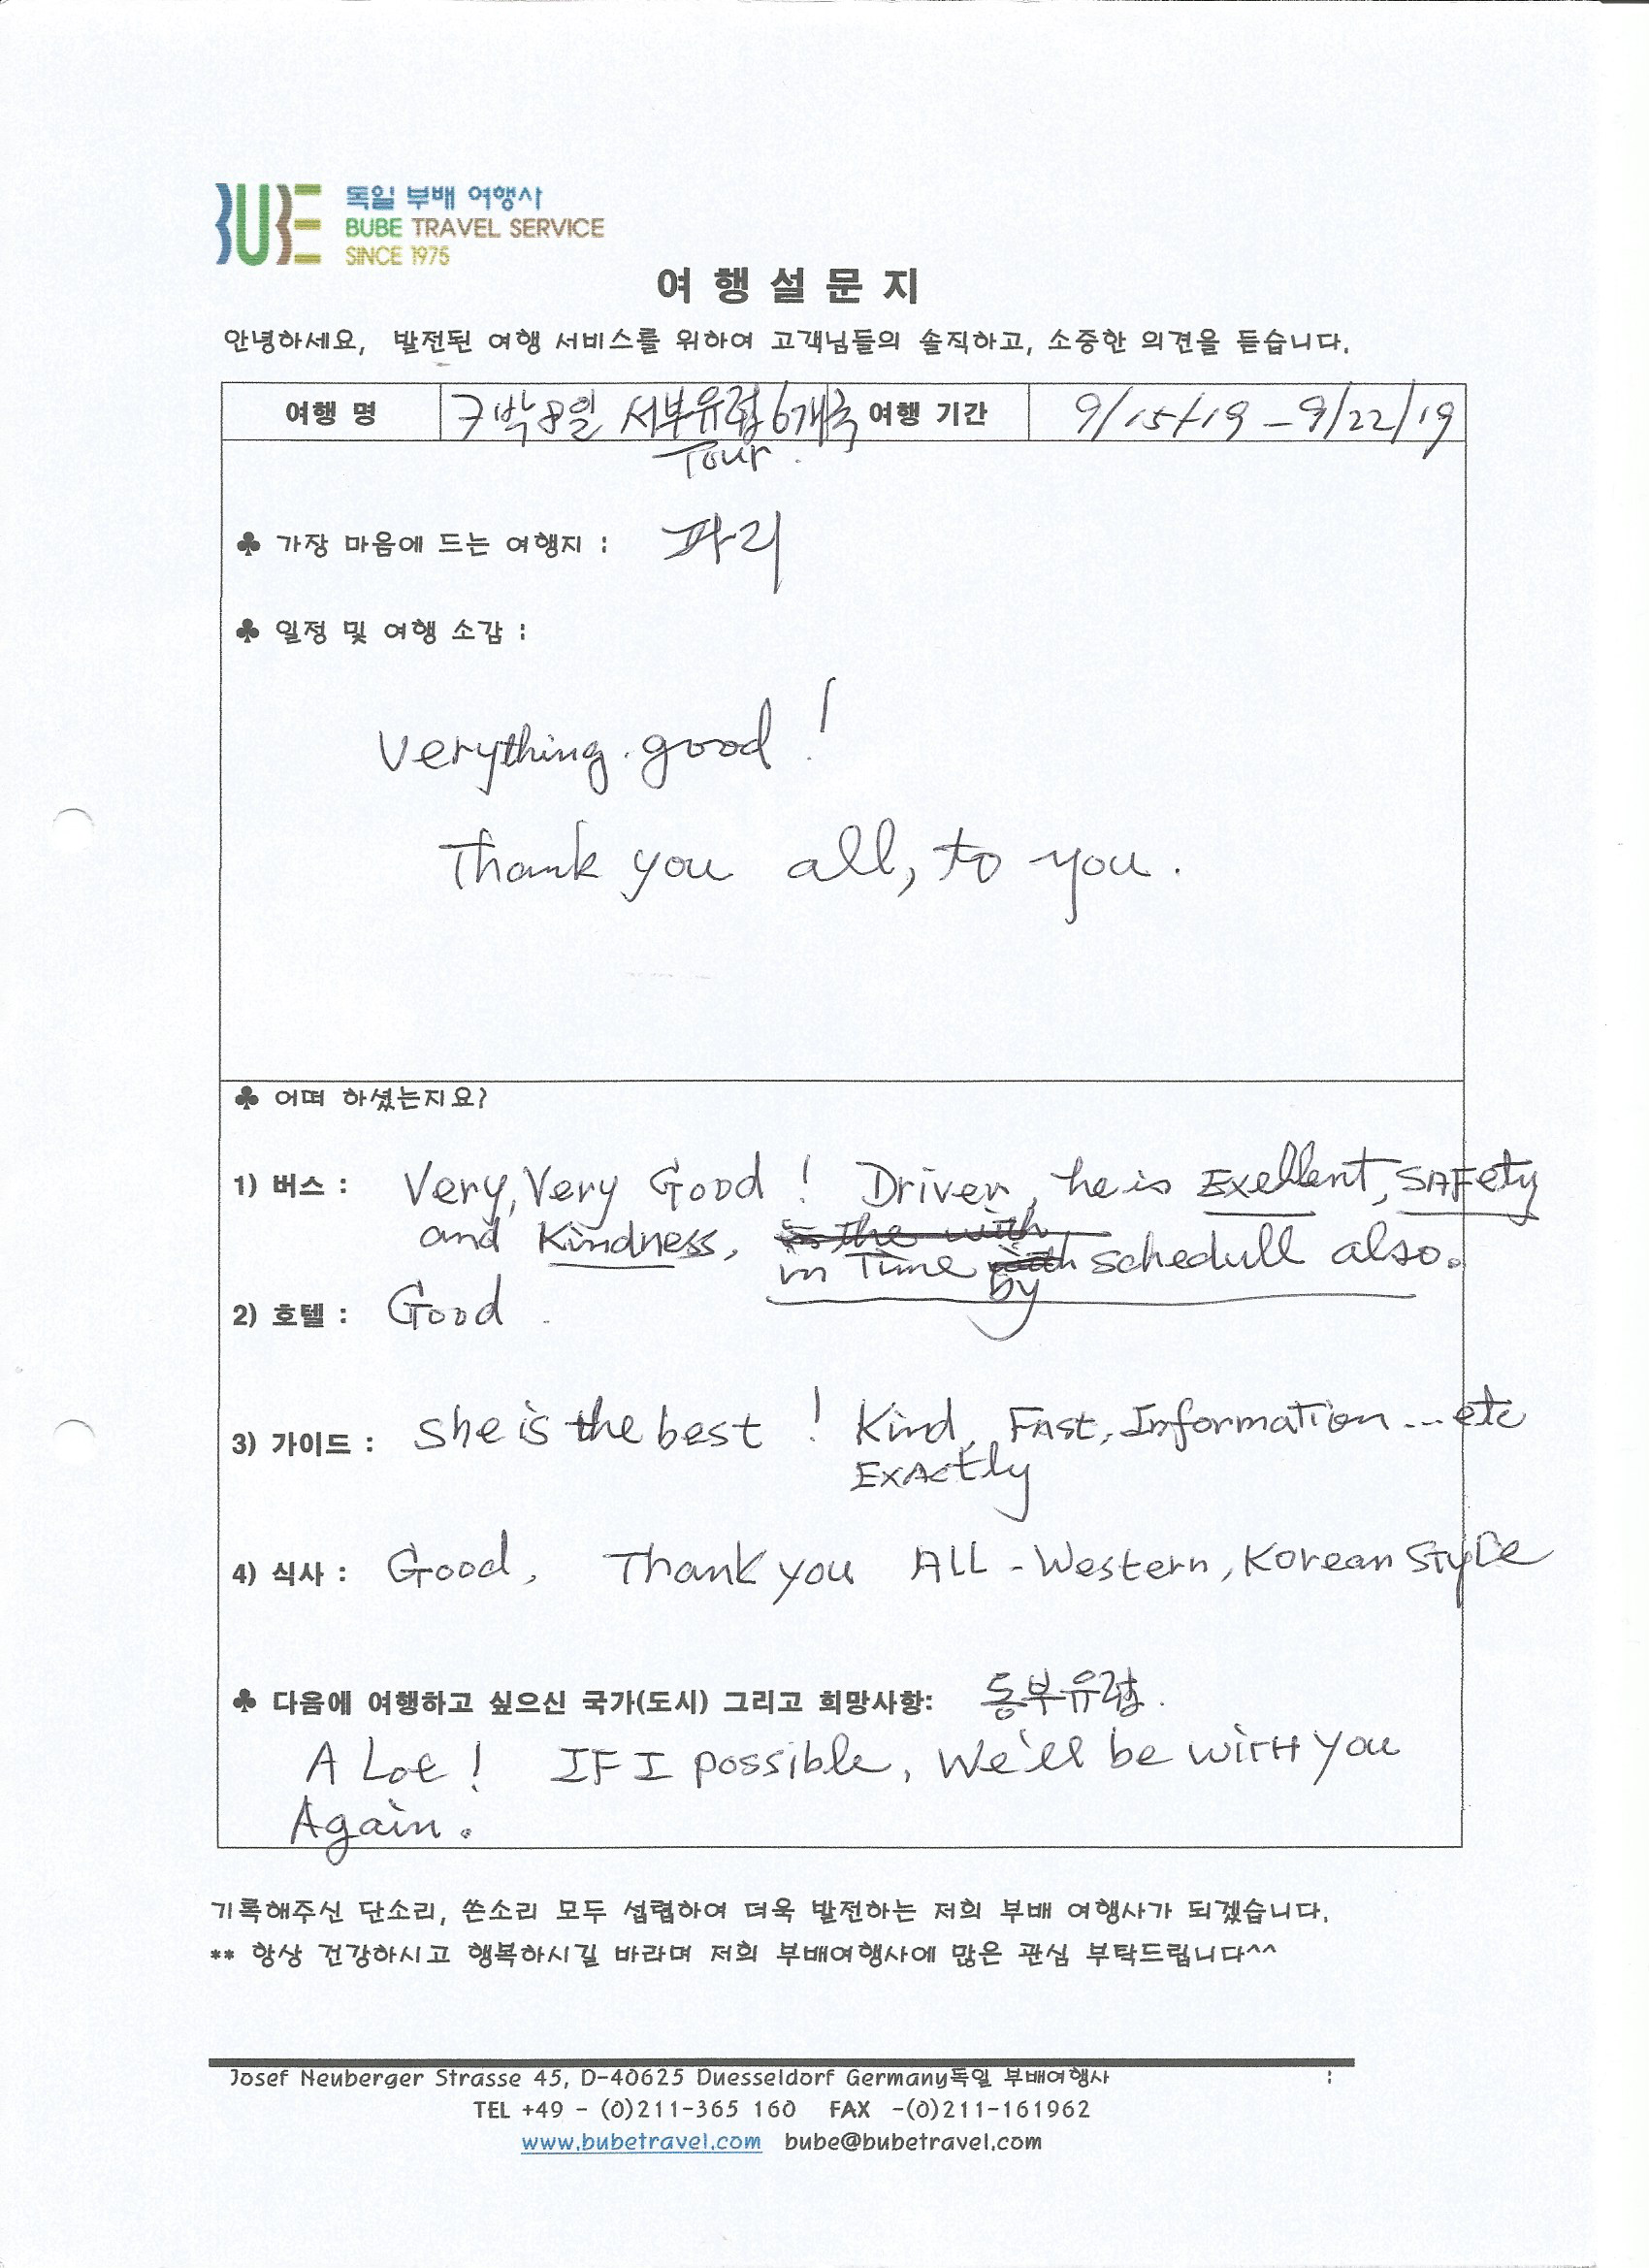 BUBE
독일 부배 여행사
BUBE TRAVEL SERVICE
SINCE 1975
여 행 설 문 지
안녕하세요, 발전된 여행 서비스를 위하여 고객님들의 솔직하고, 소중한 의견을 듣습니다.
여행 명 7박8일 서부유럽 6개국 여행 기간 9/15/19 - 9/22/19
Tour.
♣ 가장 마음에 드는 여행지 : 파리
♣ 일정 및 여행 소감 :
Verything. good !
Thank you all, to you.
♣ 어떠 하셨는지요?
1) 버스 : Very, Very Good ! Driver, he is Exellent, SAFety
and Kindness,
in Time by schedull also.
2) 호텔 : Good.
3) 가이드 : she is the best ! Kind, Fast, Information ... etc
ExActly
4) 식사 : Good, Thank you ALL - Western, Korean Style
♣ 다음에 여행하고 싶으신 국가(도시) 그리고 희망사항: 동부유럽.
A Lot ! IF I possible, We'll be with you
Again.
기록해주신 단소리, 쓴소리 모두 섭렵하여 더욱 발전하는 저희 부배 여행사가 되겠습니다.
** 항상 건강하시고 행복하시길 바라며 저희 부배여행사에 많은 관심 부탁드립니다^^
Josef Neuberger Strasse 45, D-40625 Duesseldorf Germany독일 부배여행사 :
TEL +49 - (0)211-365 160 FAX -(0)211-161962
www.bubetravel.com bube@bubetravel.com